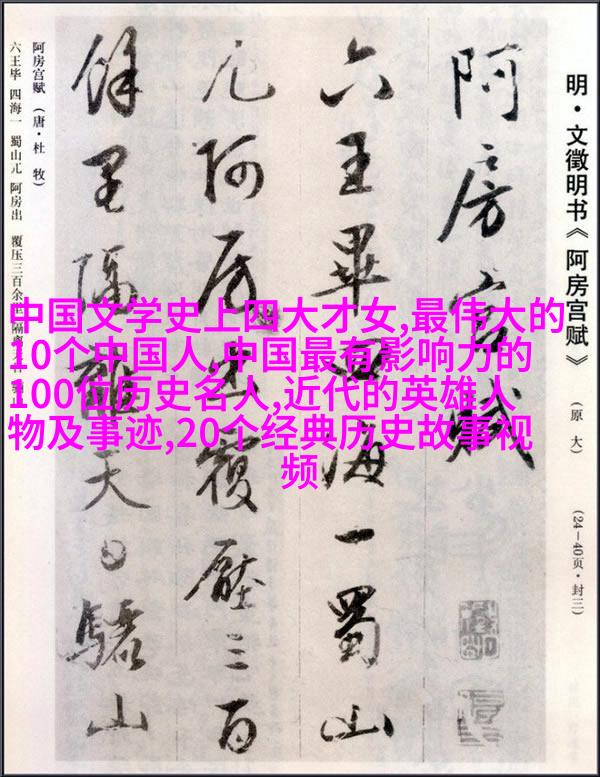 明·文徵明书《阿房宫赋》
(原 大)
(24—40页·封三)
阿房宮賦
六王畢四海一蜀山
兀阿房出覆壓三百
餘里隔離天日驪山
阿房宫赋（唐·杜 牧）
六王毕 四海一 蜀山兀 阿房出 覆压三百余
中国文学史上四大才女,最伟大的
10个中国人,中国最有影响力的
100位历史名人,近代的英雄人
物及事迹,20个经典历史故事视
频